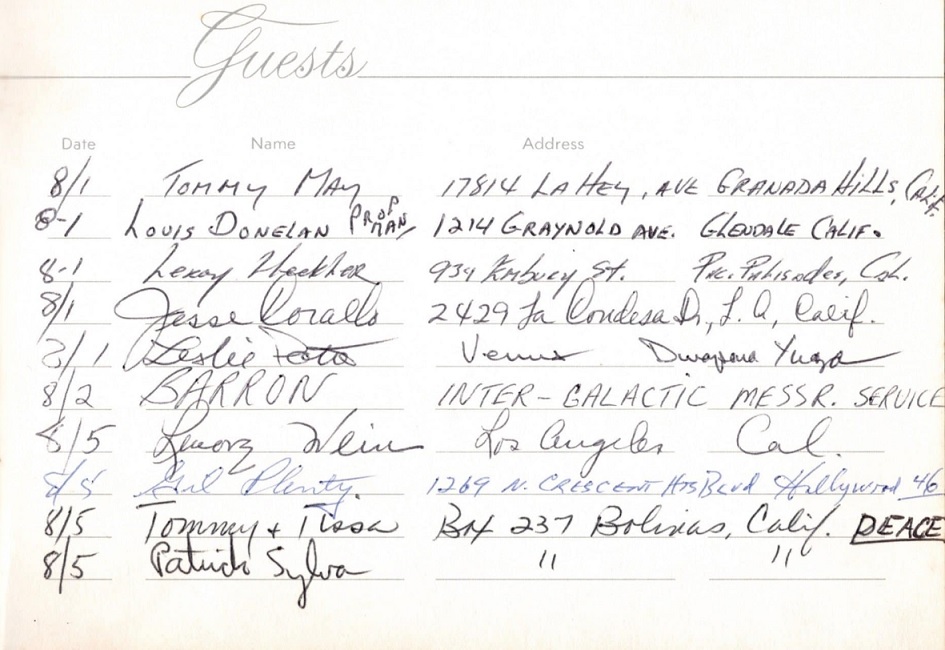 Guests
Date Name Address
8/1 TOMMY MAY 17814 LAHEY, AVE GRANADA HILLS, Calif.
8-1 LOUIS DONELAN PROP MAN 1214 GRAYNOLD AVE. GLENDALE CALIF.
8-1 Leroy 934 Embury St. Pac. Palisades, Cal.
8/1 Jesse Coralls 2429 La Condesa Dr, L.A, Calif.
8/1 Leslie Venus Dwapara Yuga
8/2 BARRON INTER-GALACTIC MESSR. SERVICE
8/5 Wein Los Angeles Cal.
8/5 Plenty. 1269 N. CRESCENT HTS Blvd Hollywood 46
8/5 Tommy + Box 237 Bolinas, Calif. PEACE
8/5 Patrick Sylva " "